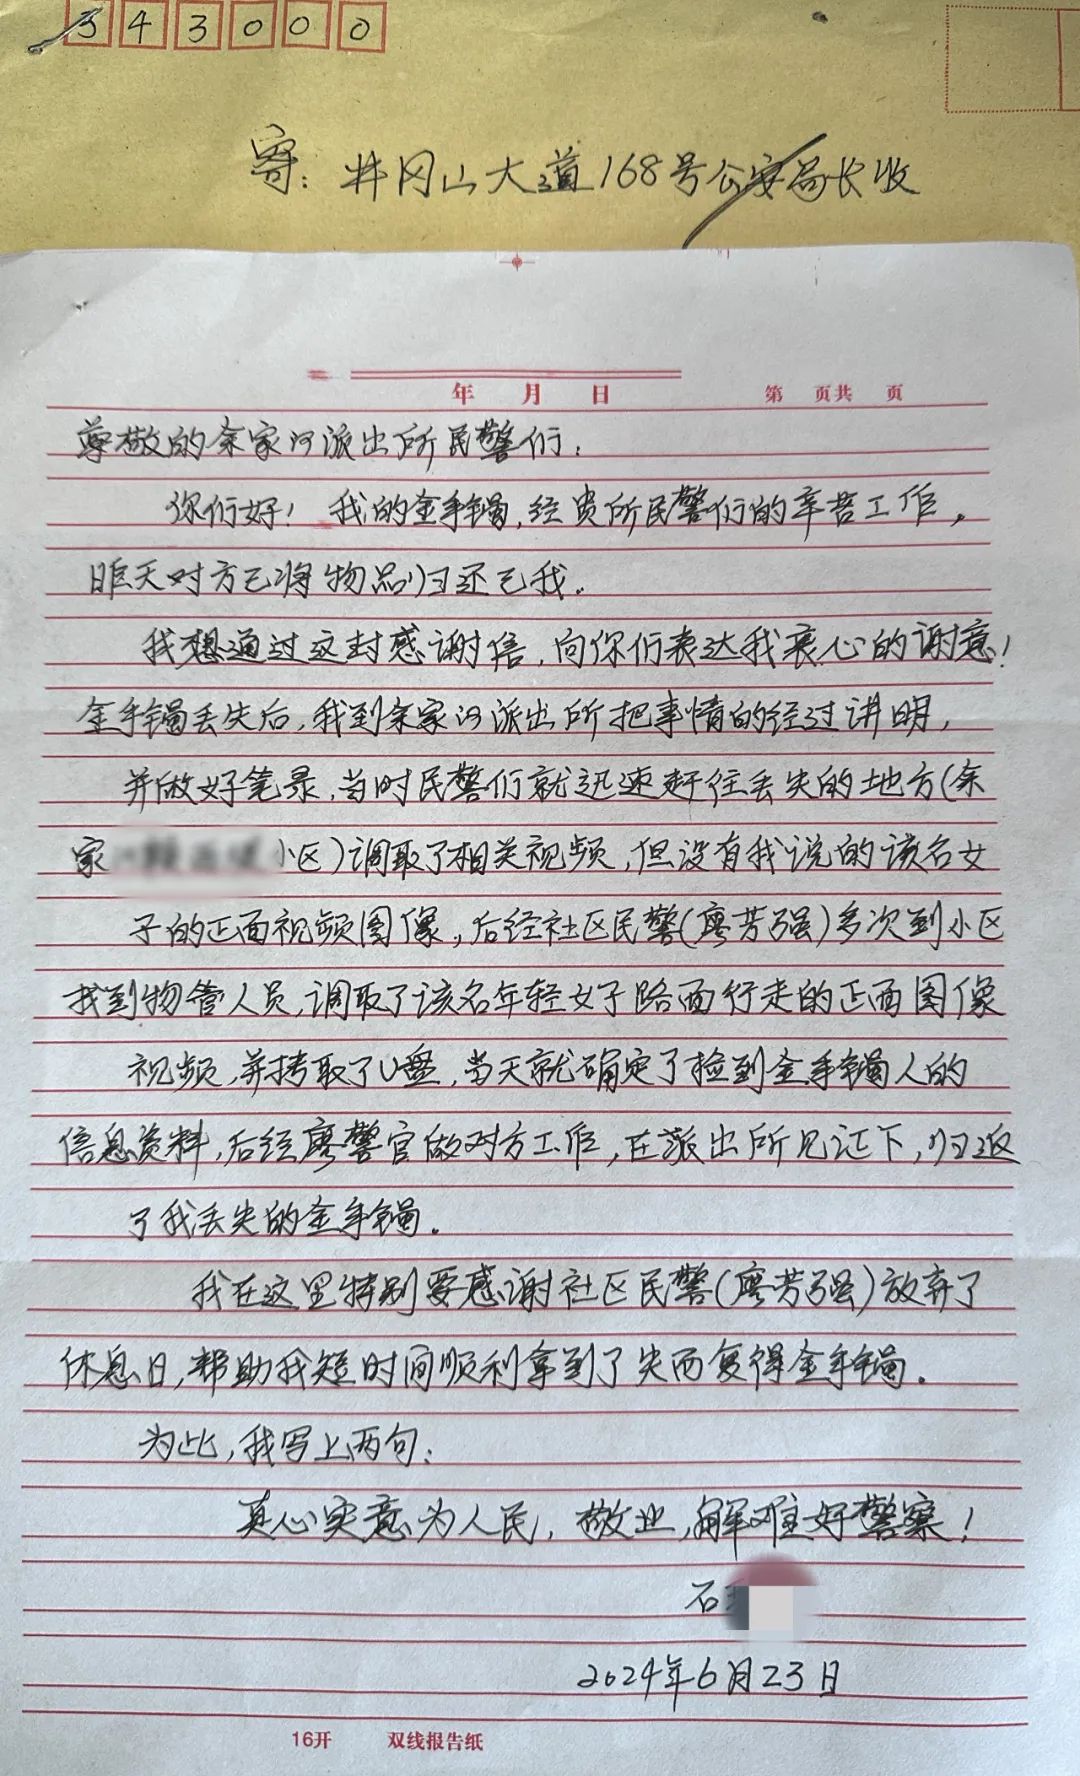 343000
寄：井冈山大道168号公安局长收
年 月 日 第 页共 页
尊敬的余家河派出所民警们：
你们好！我的金手镯，经贵所民警们的辛苦工作，
昨天对方已将物品归还已我。
我想通过这封感谢信，向你们表达我衷心的谢意！
金手镯丢失后，我到余家河派出所把事情的经过讲明，
并做好笔录，当时民警们就迅速赶往丢失的地方（余
家 小区）调取了相关视频，但没有我说的该名女
子的正面视频图像，后经社区民警（廖芳强）多次到小区
找到物管人员，调取了该名年轻女子路面行走的正面图像
视频，并拷取了U盘，当天就确定了捡到金手镯人的
信息资料，后经廖警官做对方工作，在派出所见证下，归返
了我丢失的金手镯。
我在这里特别要感谢社区民警（廖芳强）放弃了
休息日，帮助我短时间顺利拿到了失而复得金手镯。
为此，我写上两句：
真心实意为人民，敬业，解难好警察！
石
2024年6月23日
16开 双线报告纸